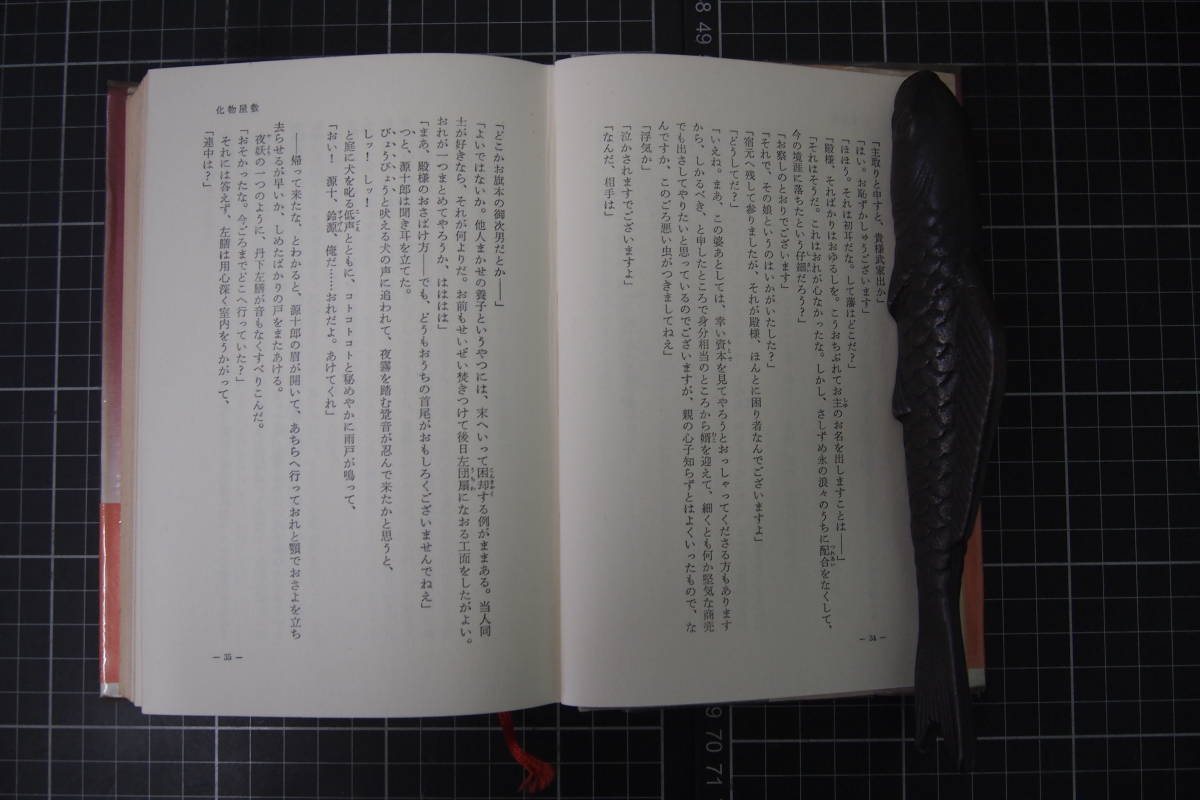 「主取りと申すと、貴様武家出か」
「はい。お恥ずかしゅうございます」
「ほほう。それは初耳だな。して藩はどこだ?」
「殿様、そればかりはおゆるしを。こうおちぶれてお主のお名を出しますことは――」
「それはそうだ。これはおれが心なかったな。しかし、さしずめ永の浪々のうちに配合をなくして、
今の境涯に落ちたという仔細だろう?」
「お察しのとおりでございます」
「それで、その娘というのはいかがいたした?」
「宿元へ残して参りましたが、それが殿様、ほんとに困り者なんでございますよ」
「どうしてだ?」
「いえね。まあ、この婆あとしては、幸い資本を見てやろうとおっしゃってくださる方もあります
から、しかるべき、と申したところで身分相当のところから婿を迎えて、細くとも何か堅気な商売
でも出さしてやりたいと思っているのでございますが、親の心子知らずとはよくいったもので、な
んですか、このごろ悪い虫がつきましてねえ」
「浮気か」
「泣かされますでございますよ」
「なんだ、相手は」
― 34 ―
化物屋敷
「どこかお旗本の御次男だとか――」
「よいではないか。他人まかせの養子というやつには、末へいって困却する例がままある。当人同
士が好きなら、それが何よりだ。お前もせいぜい焚きつけて後日左団扇になおる工面をしたがよい。
おれが一つまとめてやろうか、はははは」
「まあ、殿様のおさばけ方――でも、どうもおうちの首尾がおもしろくございませんでねえ」
つと、源十郎は聞き耳を立てた。
びょうびょうと吠える犬の声に追われて、夜霧を踏む跫音が忍んで来たかと思うと、
しッ! しッ!
と庭に犬を叱る低声とともに、コトコトコトと秘めやかに雨戸が鳴って、
「おい! 源十、鈴源、俺だ……おれだよ。あけてくれ」
――帰って来たな、とわかると、源十郎の眉が開いて、あちらへ行っておれと顎でおさよを立ち
去らせるが早いか、しめたばかりの戸をまたあける。
夜妖の一つのように、丹下左膳が音もなくすべりこんだ。
「おそかったな。今ごろまでどこへ行っていた?」
それには答えず、左膳は用心深く室内をうかがって、
「連中は?」
― 35 ―
8 49
9 70 71